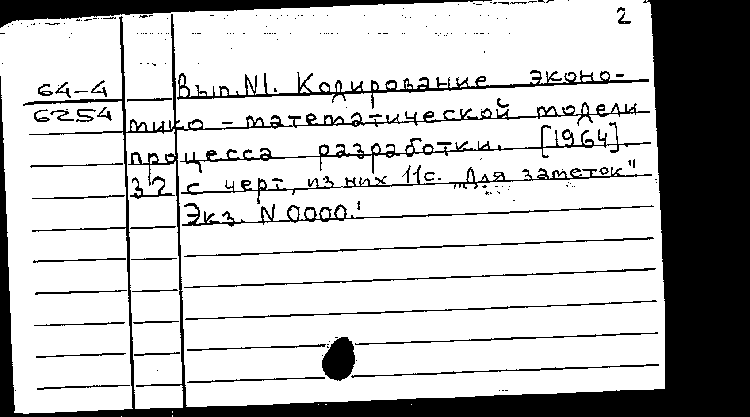 2
64-4
6254
Вып. N1. Кодирование эконо-
мико-математической модели
процесса разработки. [1964].
32 с черт, из них 11с. "Для заметок"
Экз. N 0000.